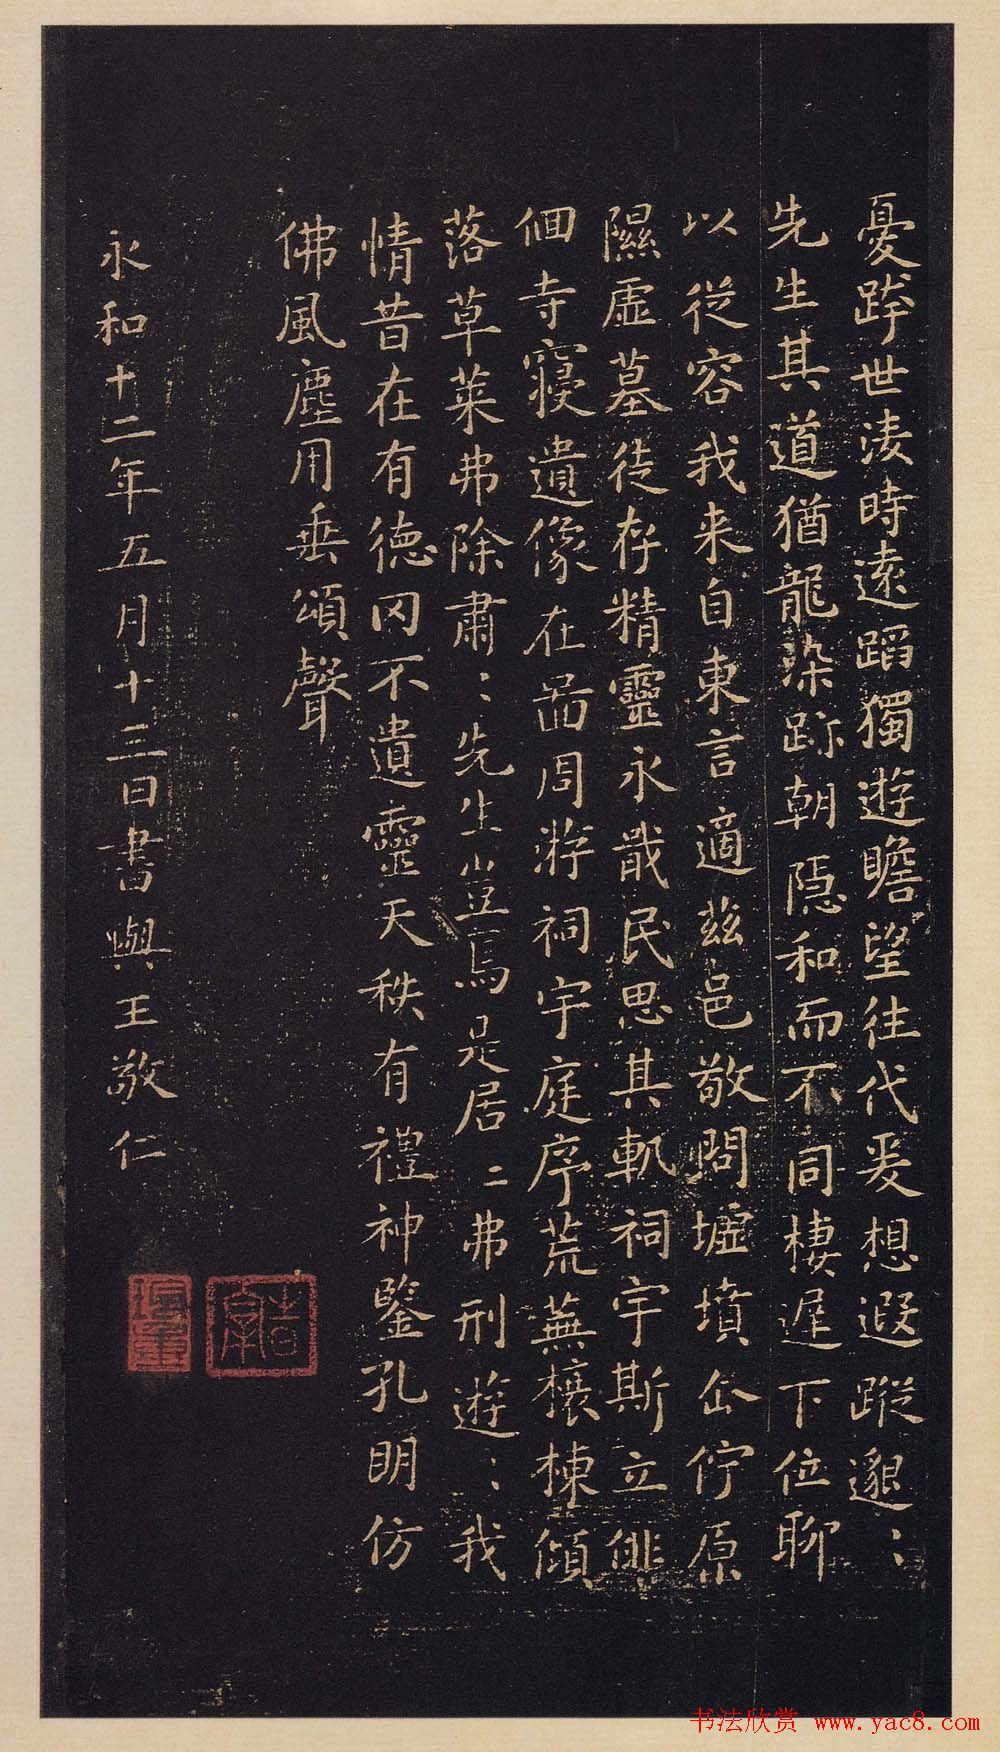 憂跨世淩時遠蹈獨遊瞻望往代爰想遐蹤邈〻
先生其道猶龍染跡朝隱和而不同棲遲下位聊
以從容我来自東言適茲邑敬問墟墳企佇原
隰虛墓徒存精靈永戢民思其軌祠宇斯立俳
佪寺寢遺像在啚周游祠宇庭序荒蕪榱棟傾
落草萊弗除肅〻先生豈焉是居〻弗刑遊〻我
情昔在有德罔不遺靈天秩有禮神鑒孔明仿
佛風塵用垂頌聲
永和十二年五月十三日書與王敬仁
书法欣赏 www.yac8.com